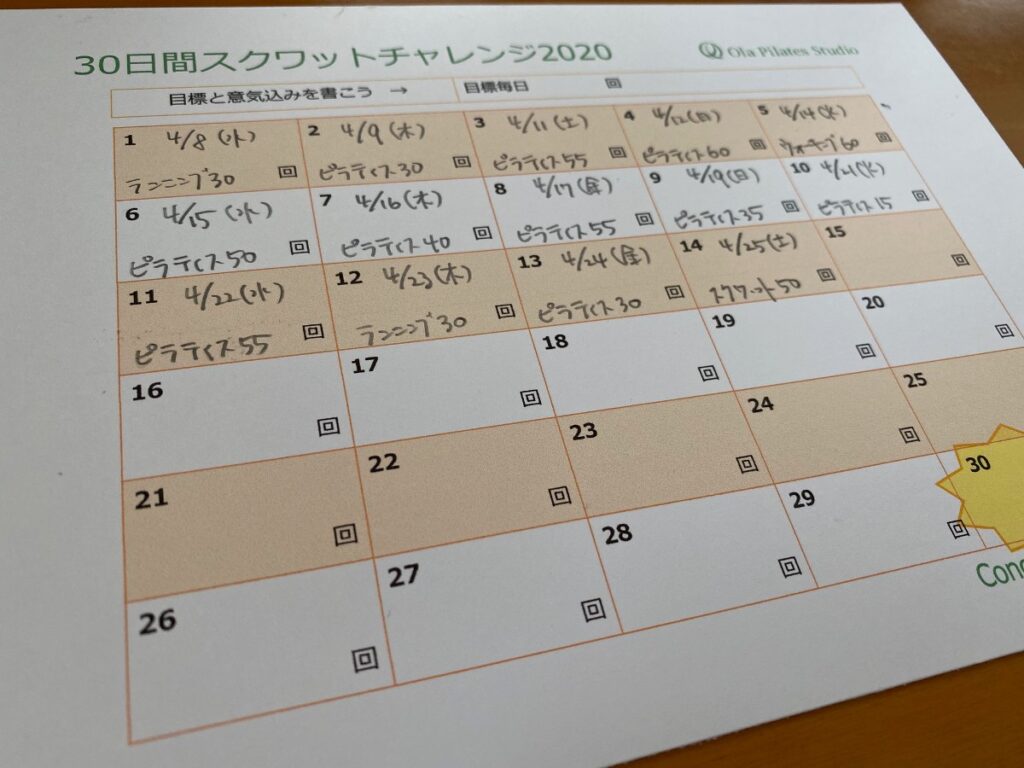 30日間スクワットチャレンジ2020
Ola Pilates Studio
目標と意気込みを書こう →
目標毎日 回
1 4/8(水)
ランニング30 回
2 4/9(木)
ピラティス30 回
3 4/11(土)
ピラティス55 回
4 4/12(日)
ピラティス60 回
5 4/14(火)
ウォーキング60 回
6 4/15(水)
ピラティス50 回
7 4/16(木)
ピラティス40 回
8 4/17(金)
ピラティス55 回
9 4/19(日)
ピラティス35 回
10 4/21(火)
ピラティス15 回
11 4/22(水)
ピラティス55 回
12 4/23(木)
ランニング30 回
13 4/24(金)
ピラティス30 回
14 4/25(土)
スクワット50 回
15
回
16
回
17
回
18
回
19
回
20
回
21
回
22
回
23
回
24
回
25
26
回
27
回
28
回
29
回
30
Con